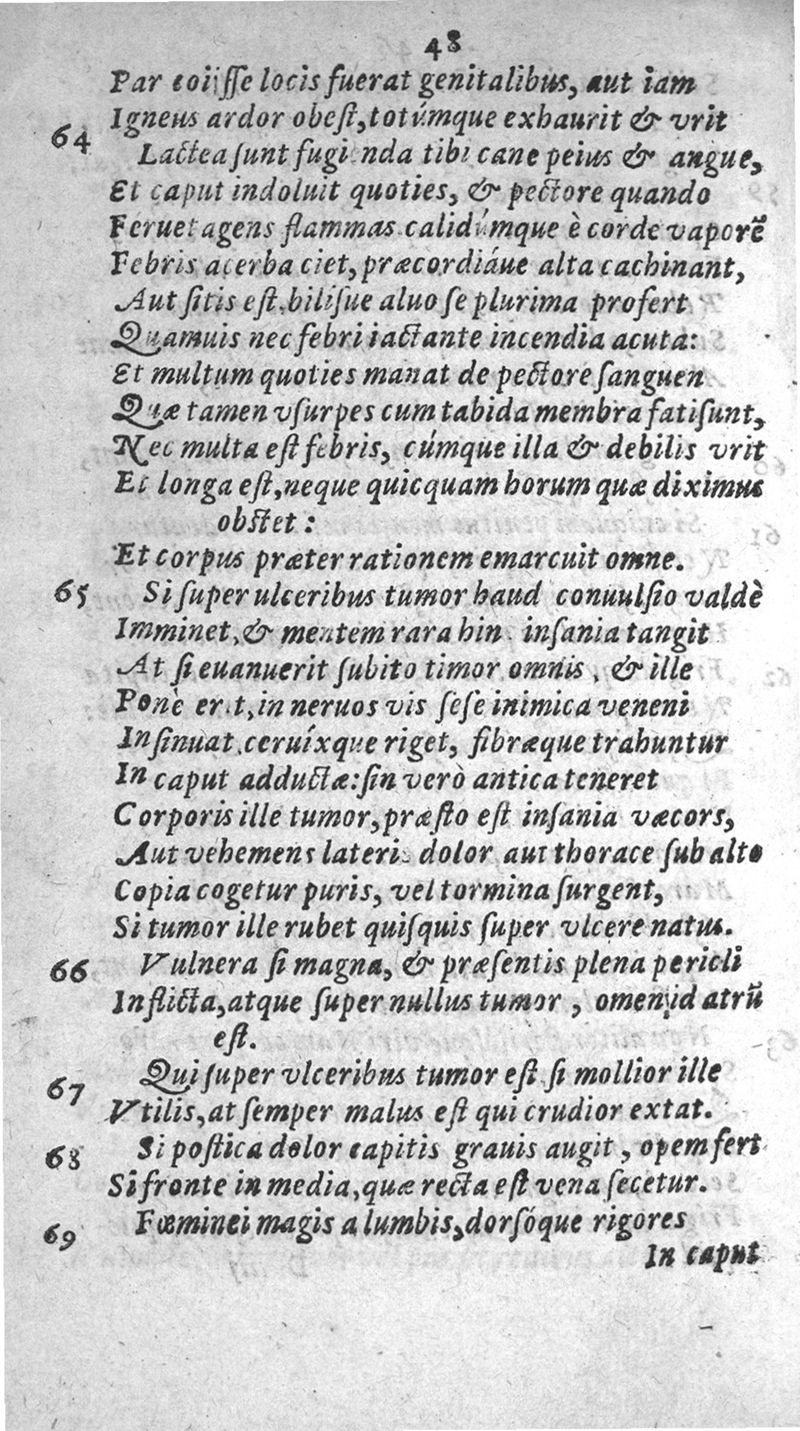 48
Par coiisse locis fuerat genitalibus, aut iam
Igneus ardor obest, totúmque exhaurit & vrit
64 Lactea sunt fugienda tibi cane peius & angue,
Et caput indoluit quoties, & pectore quando
Feruet agens flammas calidúmque è corde vaporē
Febris acerba ciet, præcordiáue alta cachinant,
Aut sitis est, bilisue aluo se plurima profert
Quamuis nec febri iactante incendia acuta:
Et multum quoties manat de pectore sanguen
Quæ tamen vsurpes cum tabida membra fatisunt,
Nec multa est febris, cúmque illa & debilis vrit
Et longa est, neque quicquam horum quæ diximus
obstet :
Et corpus præter rationem emarcuit omne.
65 Si super ulceribus tumor haud conuulsio valdè
Imminet, & mentem rara hin insania tangit
At si euanuerit subito timor omnis, & ille
Ponè erit, in neruos vis sese inimica veneni
Insinuat, ceruíxque riget, fibræque trahuntur
In caput adductæ: sin verò antica teneret
Corporis ille tumor, præsto est insania væcors,
Aut vehemens lateris dolor aut thorace sub alto
Copia cogetur puris, vel tormina surgent,
Si tumor ille rubet quisquis super vlcere natus.
66 Vulnera si magna, & præsentis plena pericli
Inflicta, atque super nullus tumor, omen id atrū
est.
67 Qui super vlceribus tumor est si mollior ille
Vtilis, at semper malus est qui crudior extat.
68 Si postica dolor capitis grauis augit, opem fert
Si fronte in media, quæ recta est vena secetur.
69 Fœminei magis a lumbis, dorsóque rigores
In caput